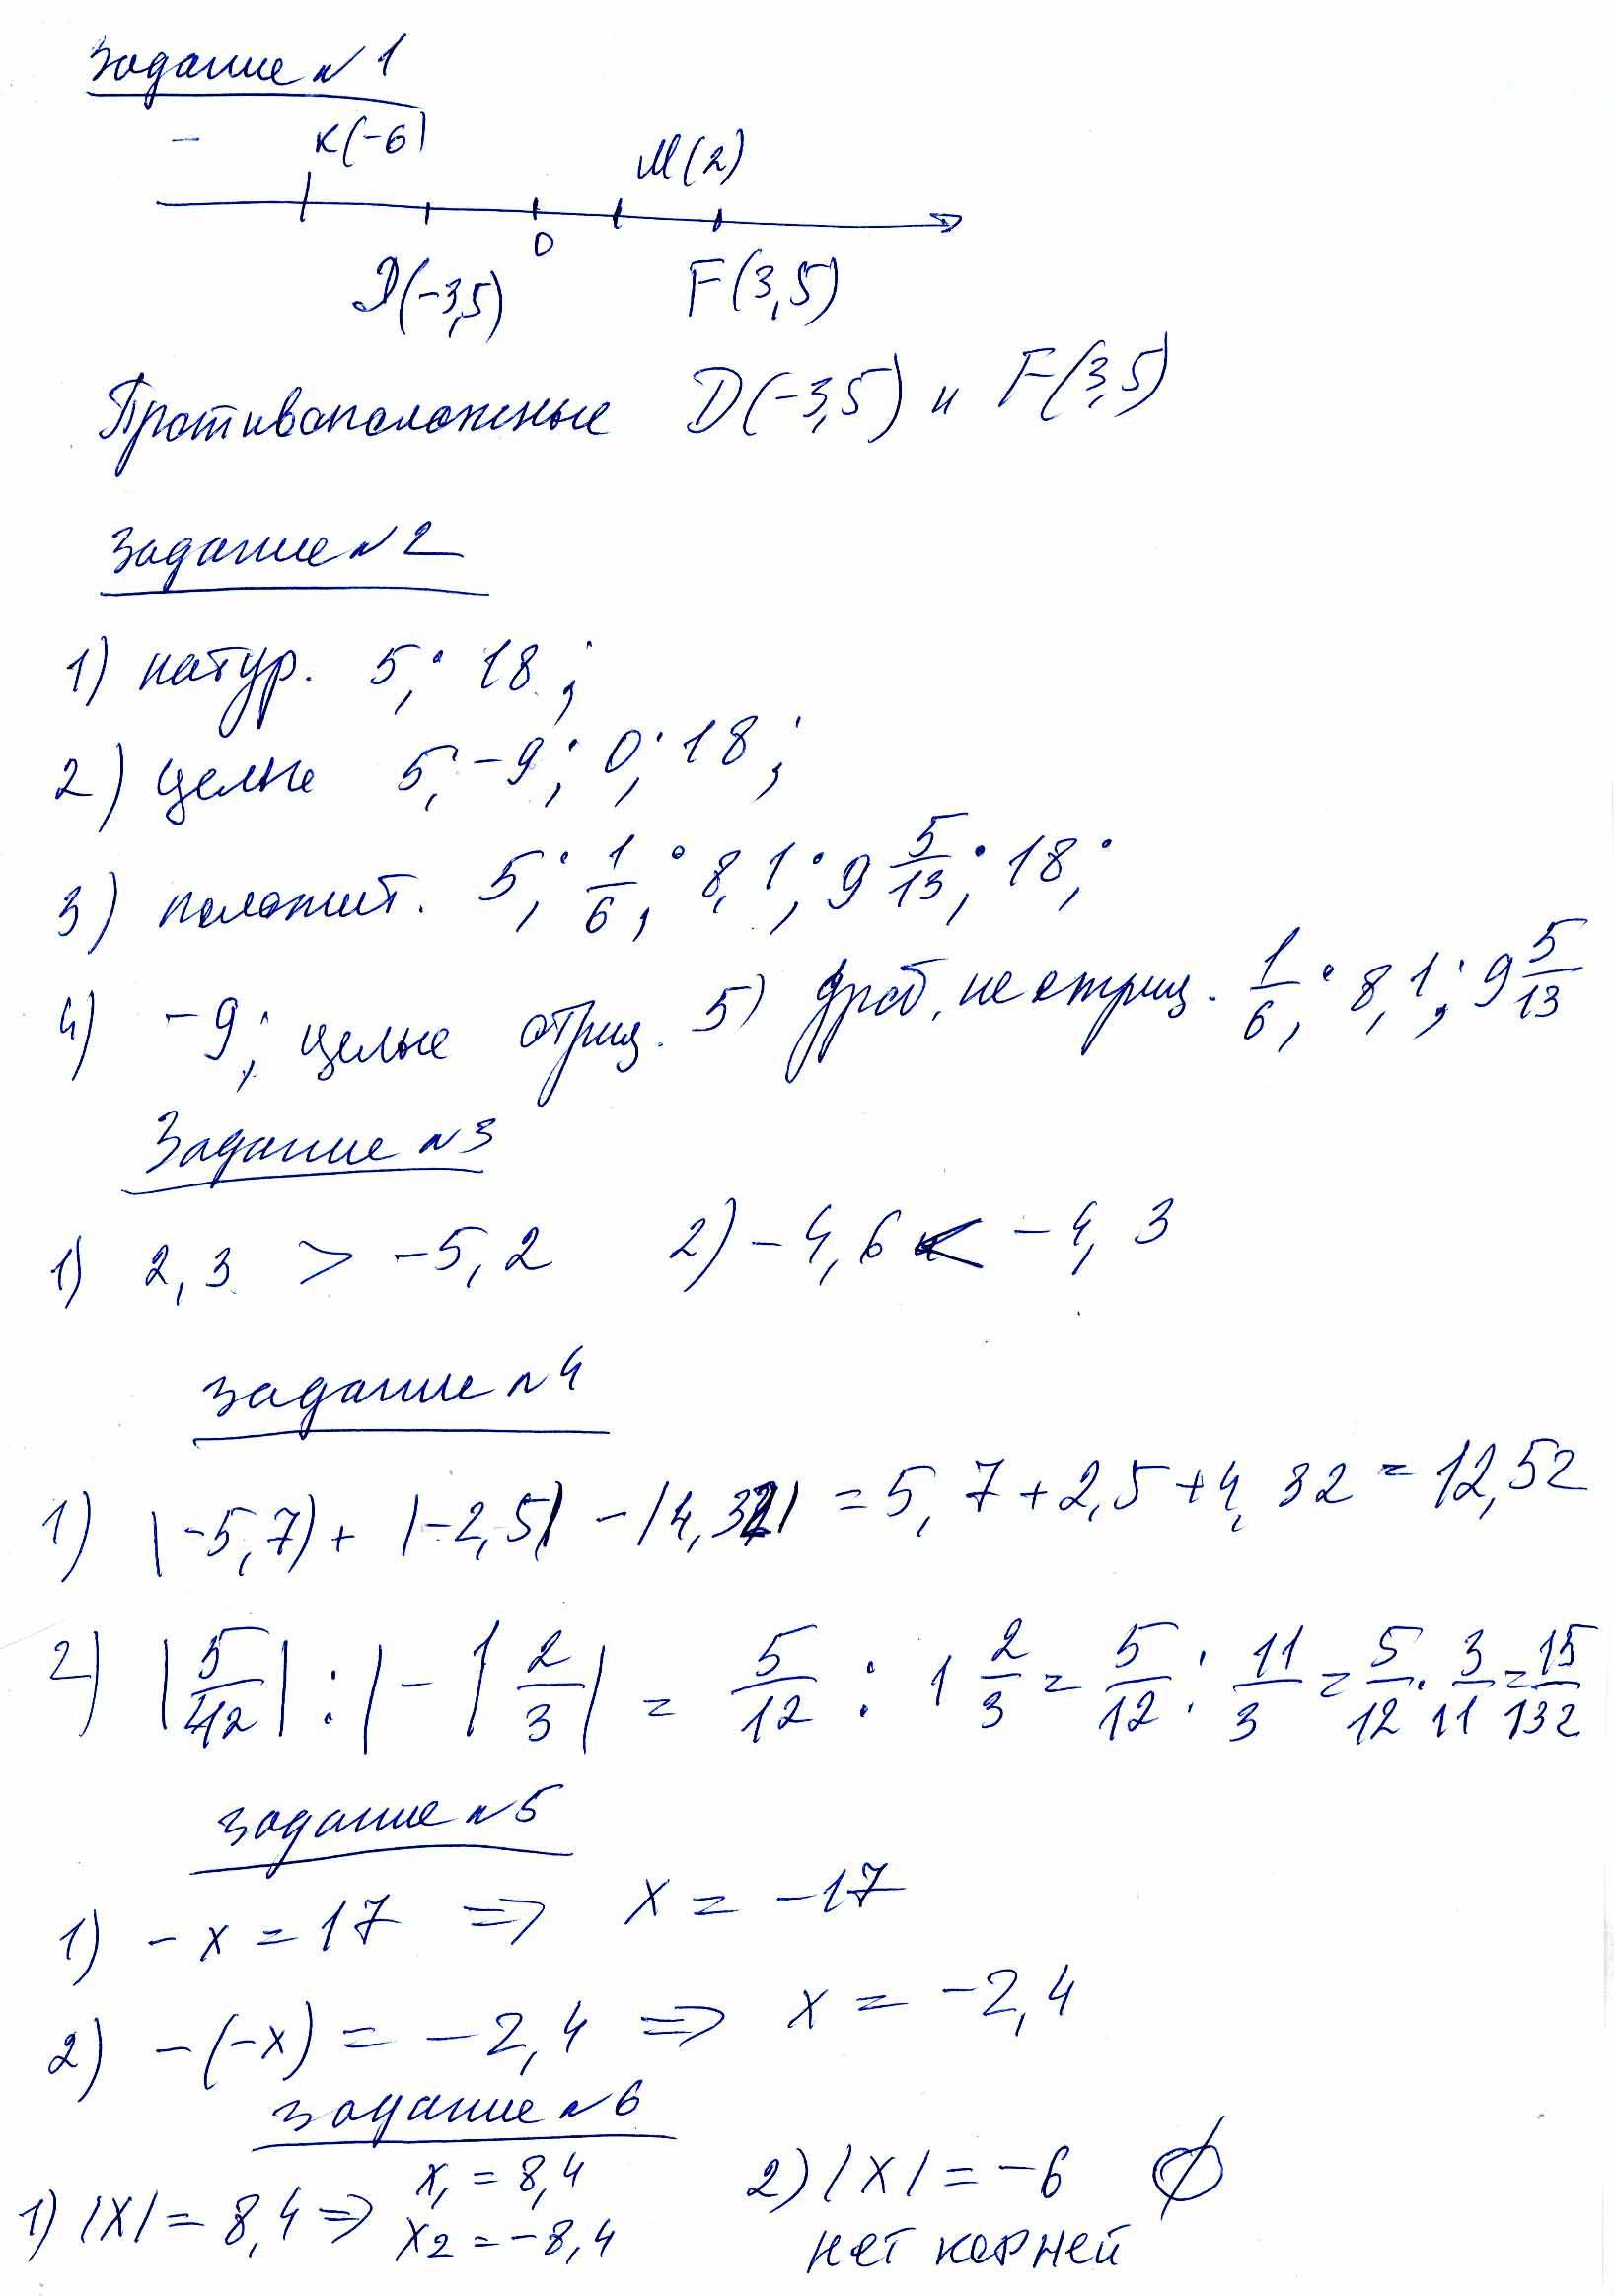 Задание №1
- K(-6) M(2)
0
D(-3,5) F(3,5)
Противоположные D(-3,5) и F(3,5)
Задание №2
1) натур. 5; 18;
2) целые 5; -9; 0; 18;
3) положит. 5; 1/6; 8,1; 9 5/13; 18;
4) -9; целые отриц. 5) дроб. неотриц. 1/6; 8,1; 9 5/13
Задание №3
1) 2,3 > -5,2 2) -4,6 < -4,3
Задание №4
1) |-5,7)+ |-2,5| - |4,32| = 5,7+2,5+4,32 = 12,52
2) |5/42| : |-1 2/3| = 5/12 : 1 2/3 = 5/12 : 11/3 = 5/12 · 3/11 = 15/132
Задание №5
1) -x = 17 => x = -17
2) -(-x) = -2,4 => x = -2,4
Задание №6
1) |x| = 8,4 => x₁ = 8,4 x₂ = -8,4
2) |x| = -6 ∅
нет корней